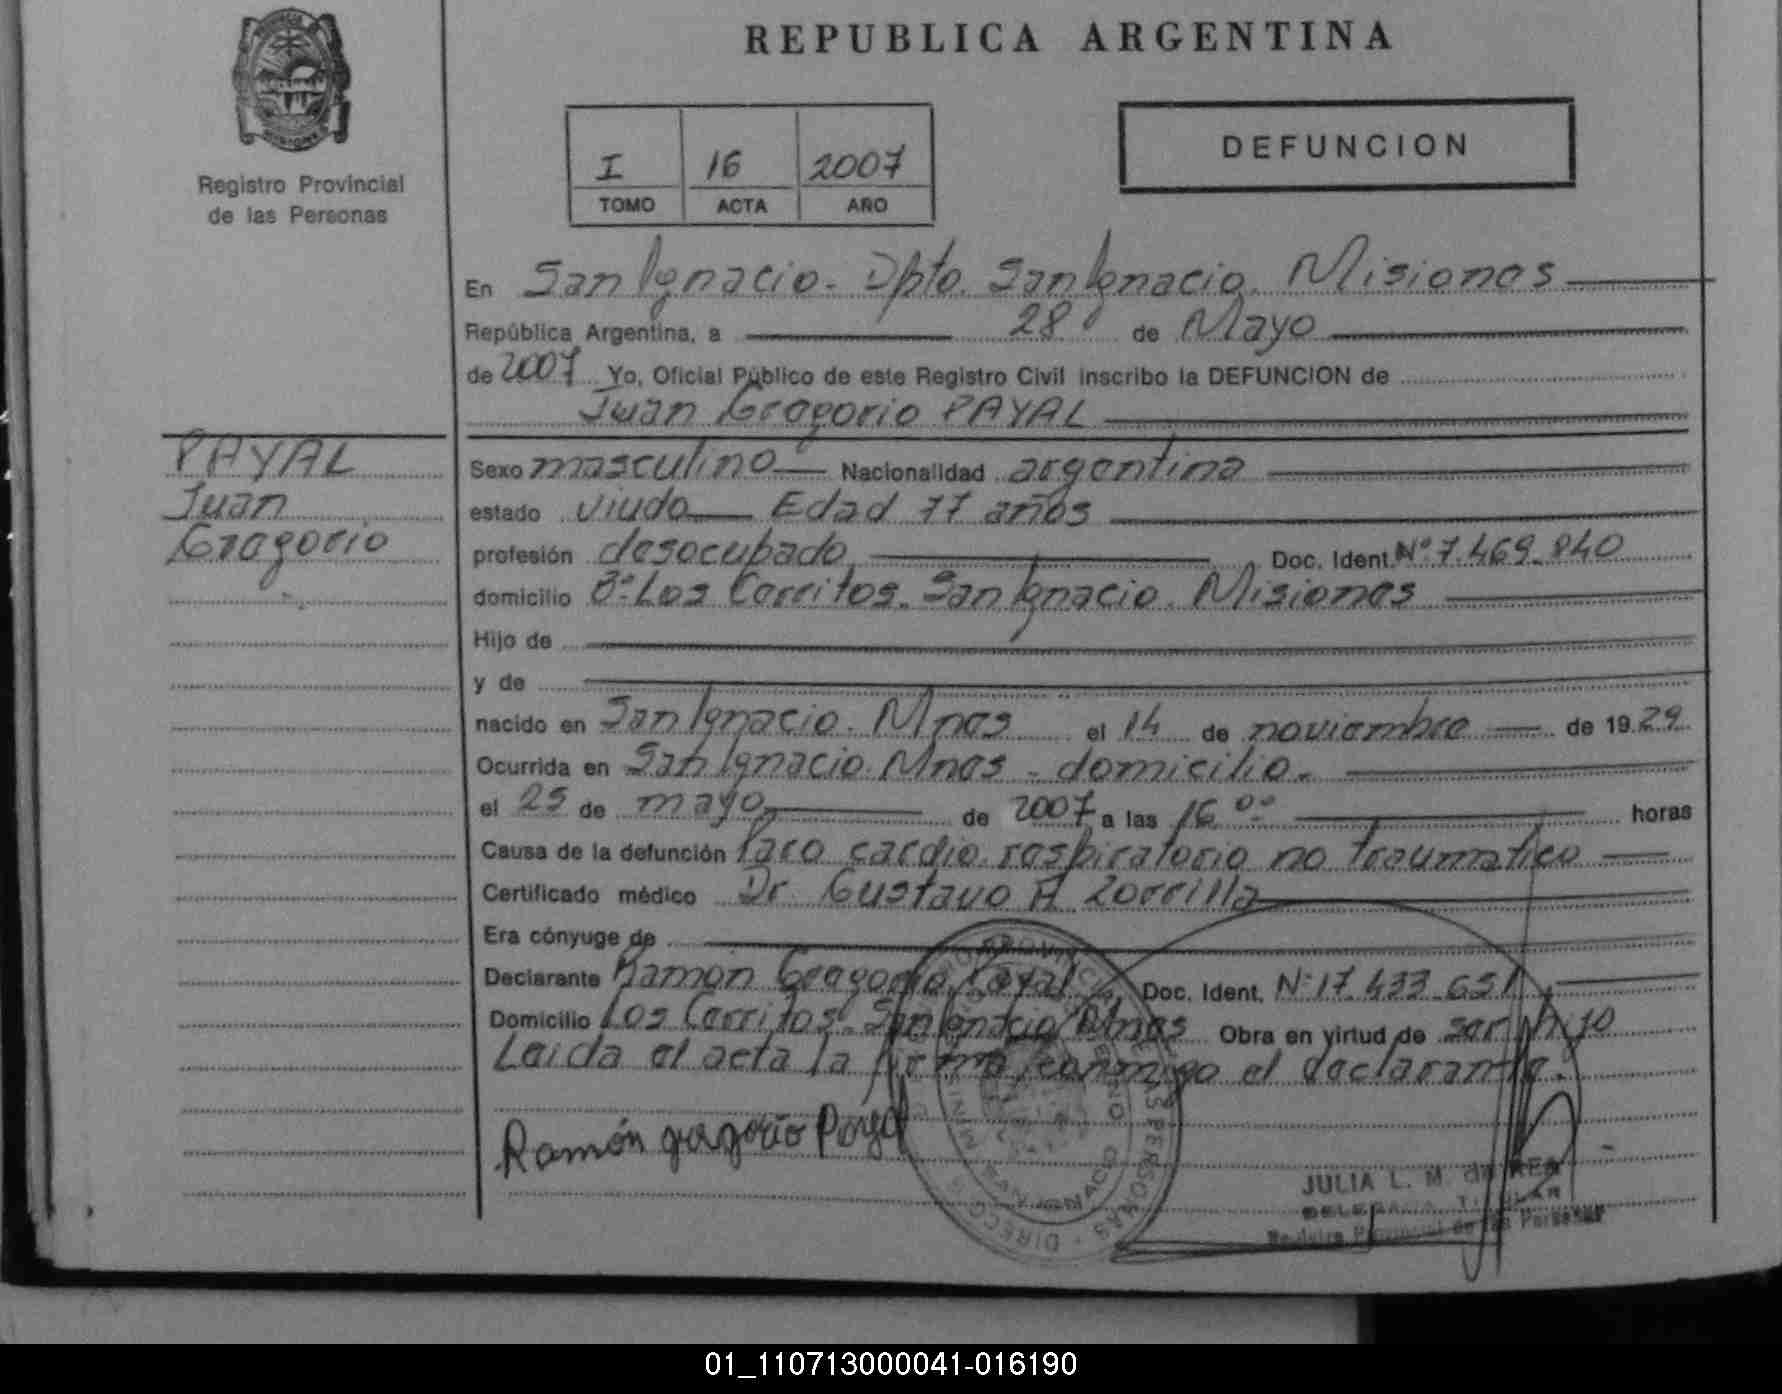 REPUBLICA ARGENTINA
Registro Provincial
de las Personas
I 16 2007
TOMO ACTA AÑO
DEFUNCION
En San Ignacio. Dpto. San Ignacio. Misiones
República Argentina, a 28 de Mayo
de 2007 Yo, Oficial Público de este Registro Civil inscribo la DEFUNCION de
Juan Gregorio PAYAL
PAYAL
Juan
Gregorio
Sexo masculino Nacionalidad argentina
estado viudo Edad 77 años
profesión desocupado Doc. Ident. Nº 7.469.840
domicilio Bº Los Cerritos. San Ignacio. Misiones
Hijo de
y de
nacido en San Ignacio. Mnes el 14 de noviembre de 1929
Ocurrida en San Ignacio. Mnes - domicilio.
el 25 de mayo de 2007 a las 16 00 horas
Causa de la defunción Paro cardio respiratorio no traumatico
Certificado médico Dr Gustavo A Zorrilla
Era cónyuge de
Declarante Ramón Gregorio Payal Doc. Ident. Nº 17.433.651
Domicilio Los Cerritos San Ignacio Mnes Obra en virtud de ser hijo
Leida el acta la firma conmigo el declarante.
Ramón gregorio Payal
SAN IGNACIO
JULIA L. M. de
DELEGADA TITULAR
Registro Provincial de las Personas
01_110713000041-016190